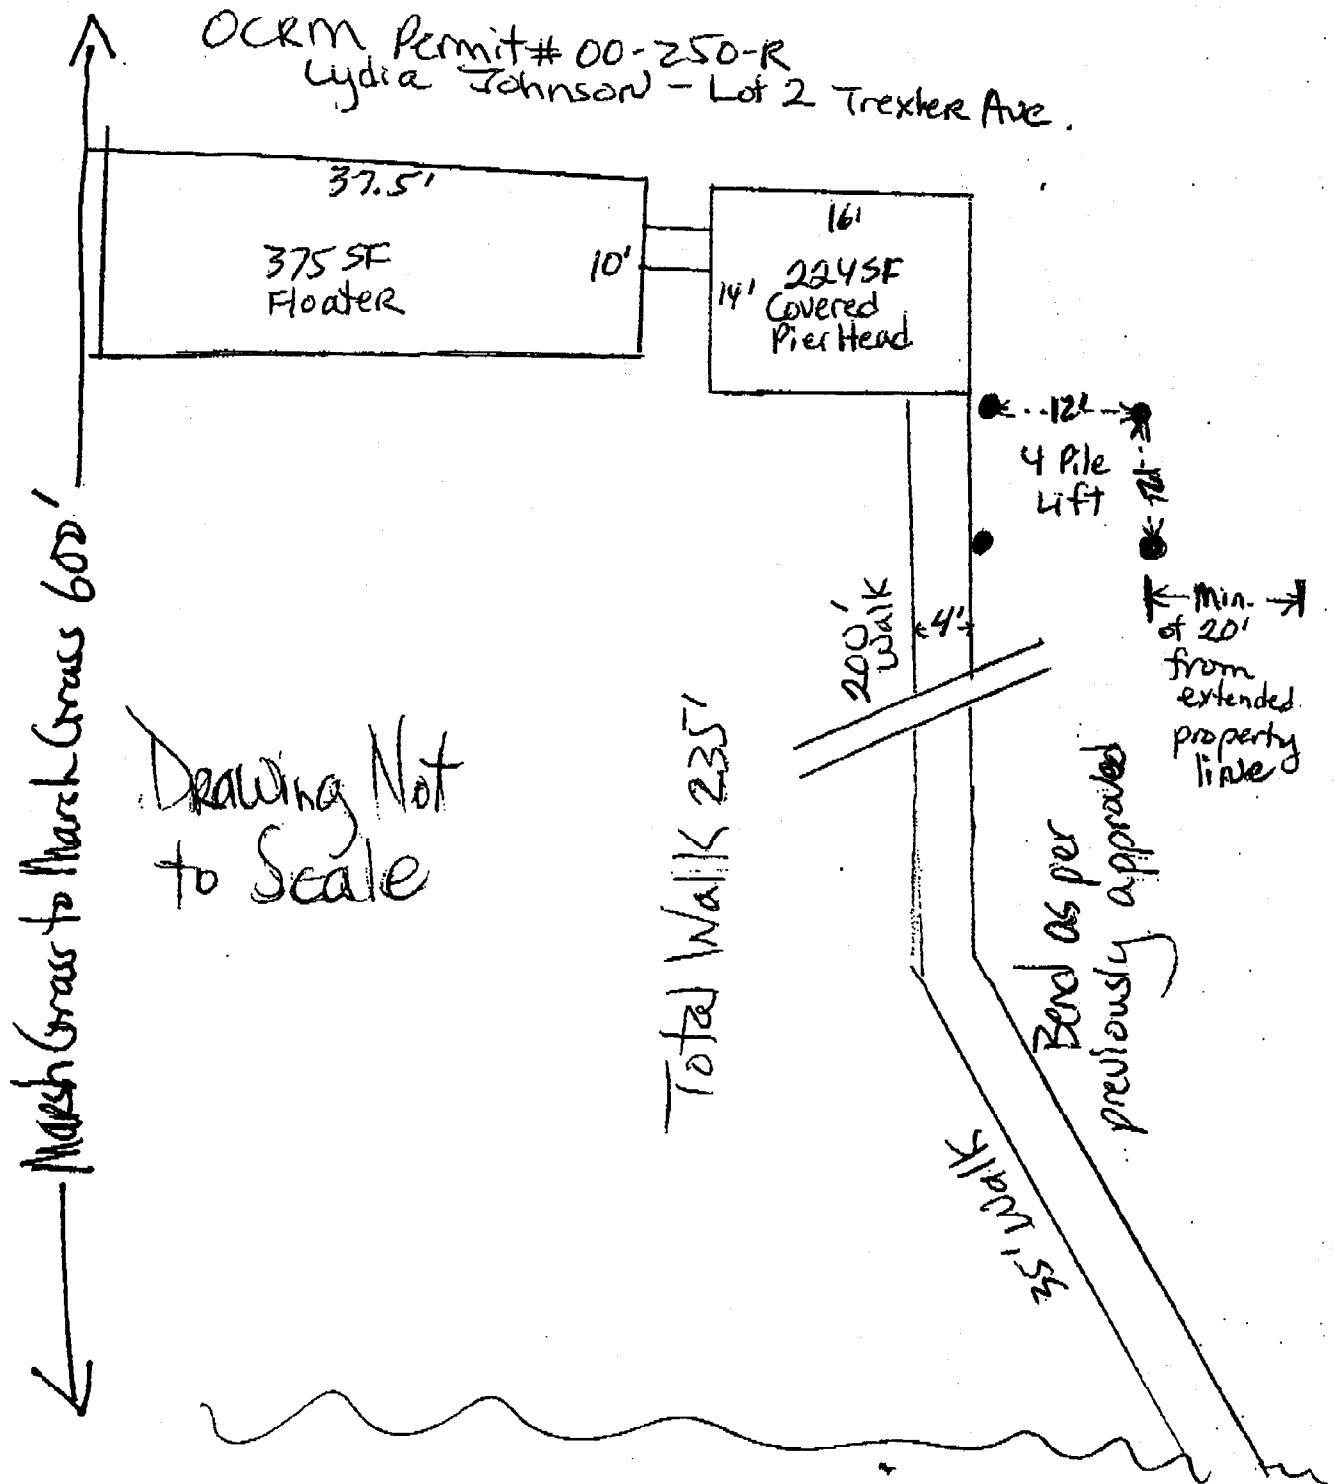 OCRM Permit# 00-250-R
Lydia Johnson - Lot 2 Trexler Ave.
37.5'
375 SF
Floater
10'
16'
14'
224 SF
Covered
Pier Head
12'
4 Pile
Lift
12'
Min.
of 20'
from
extended
property
line
200'
Walk
4'
Marsh Grass to Marsh Grass 600'
Drawing Not
to Scale
Total Walk 235'
Bend as per
previously approved
35' Walk